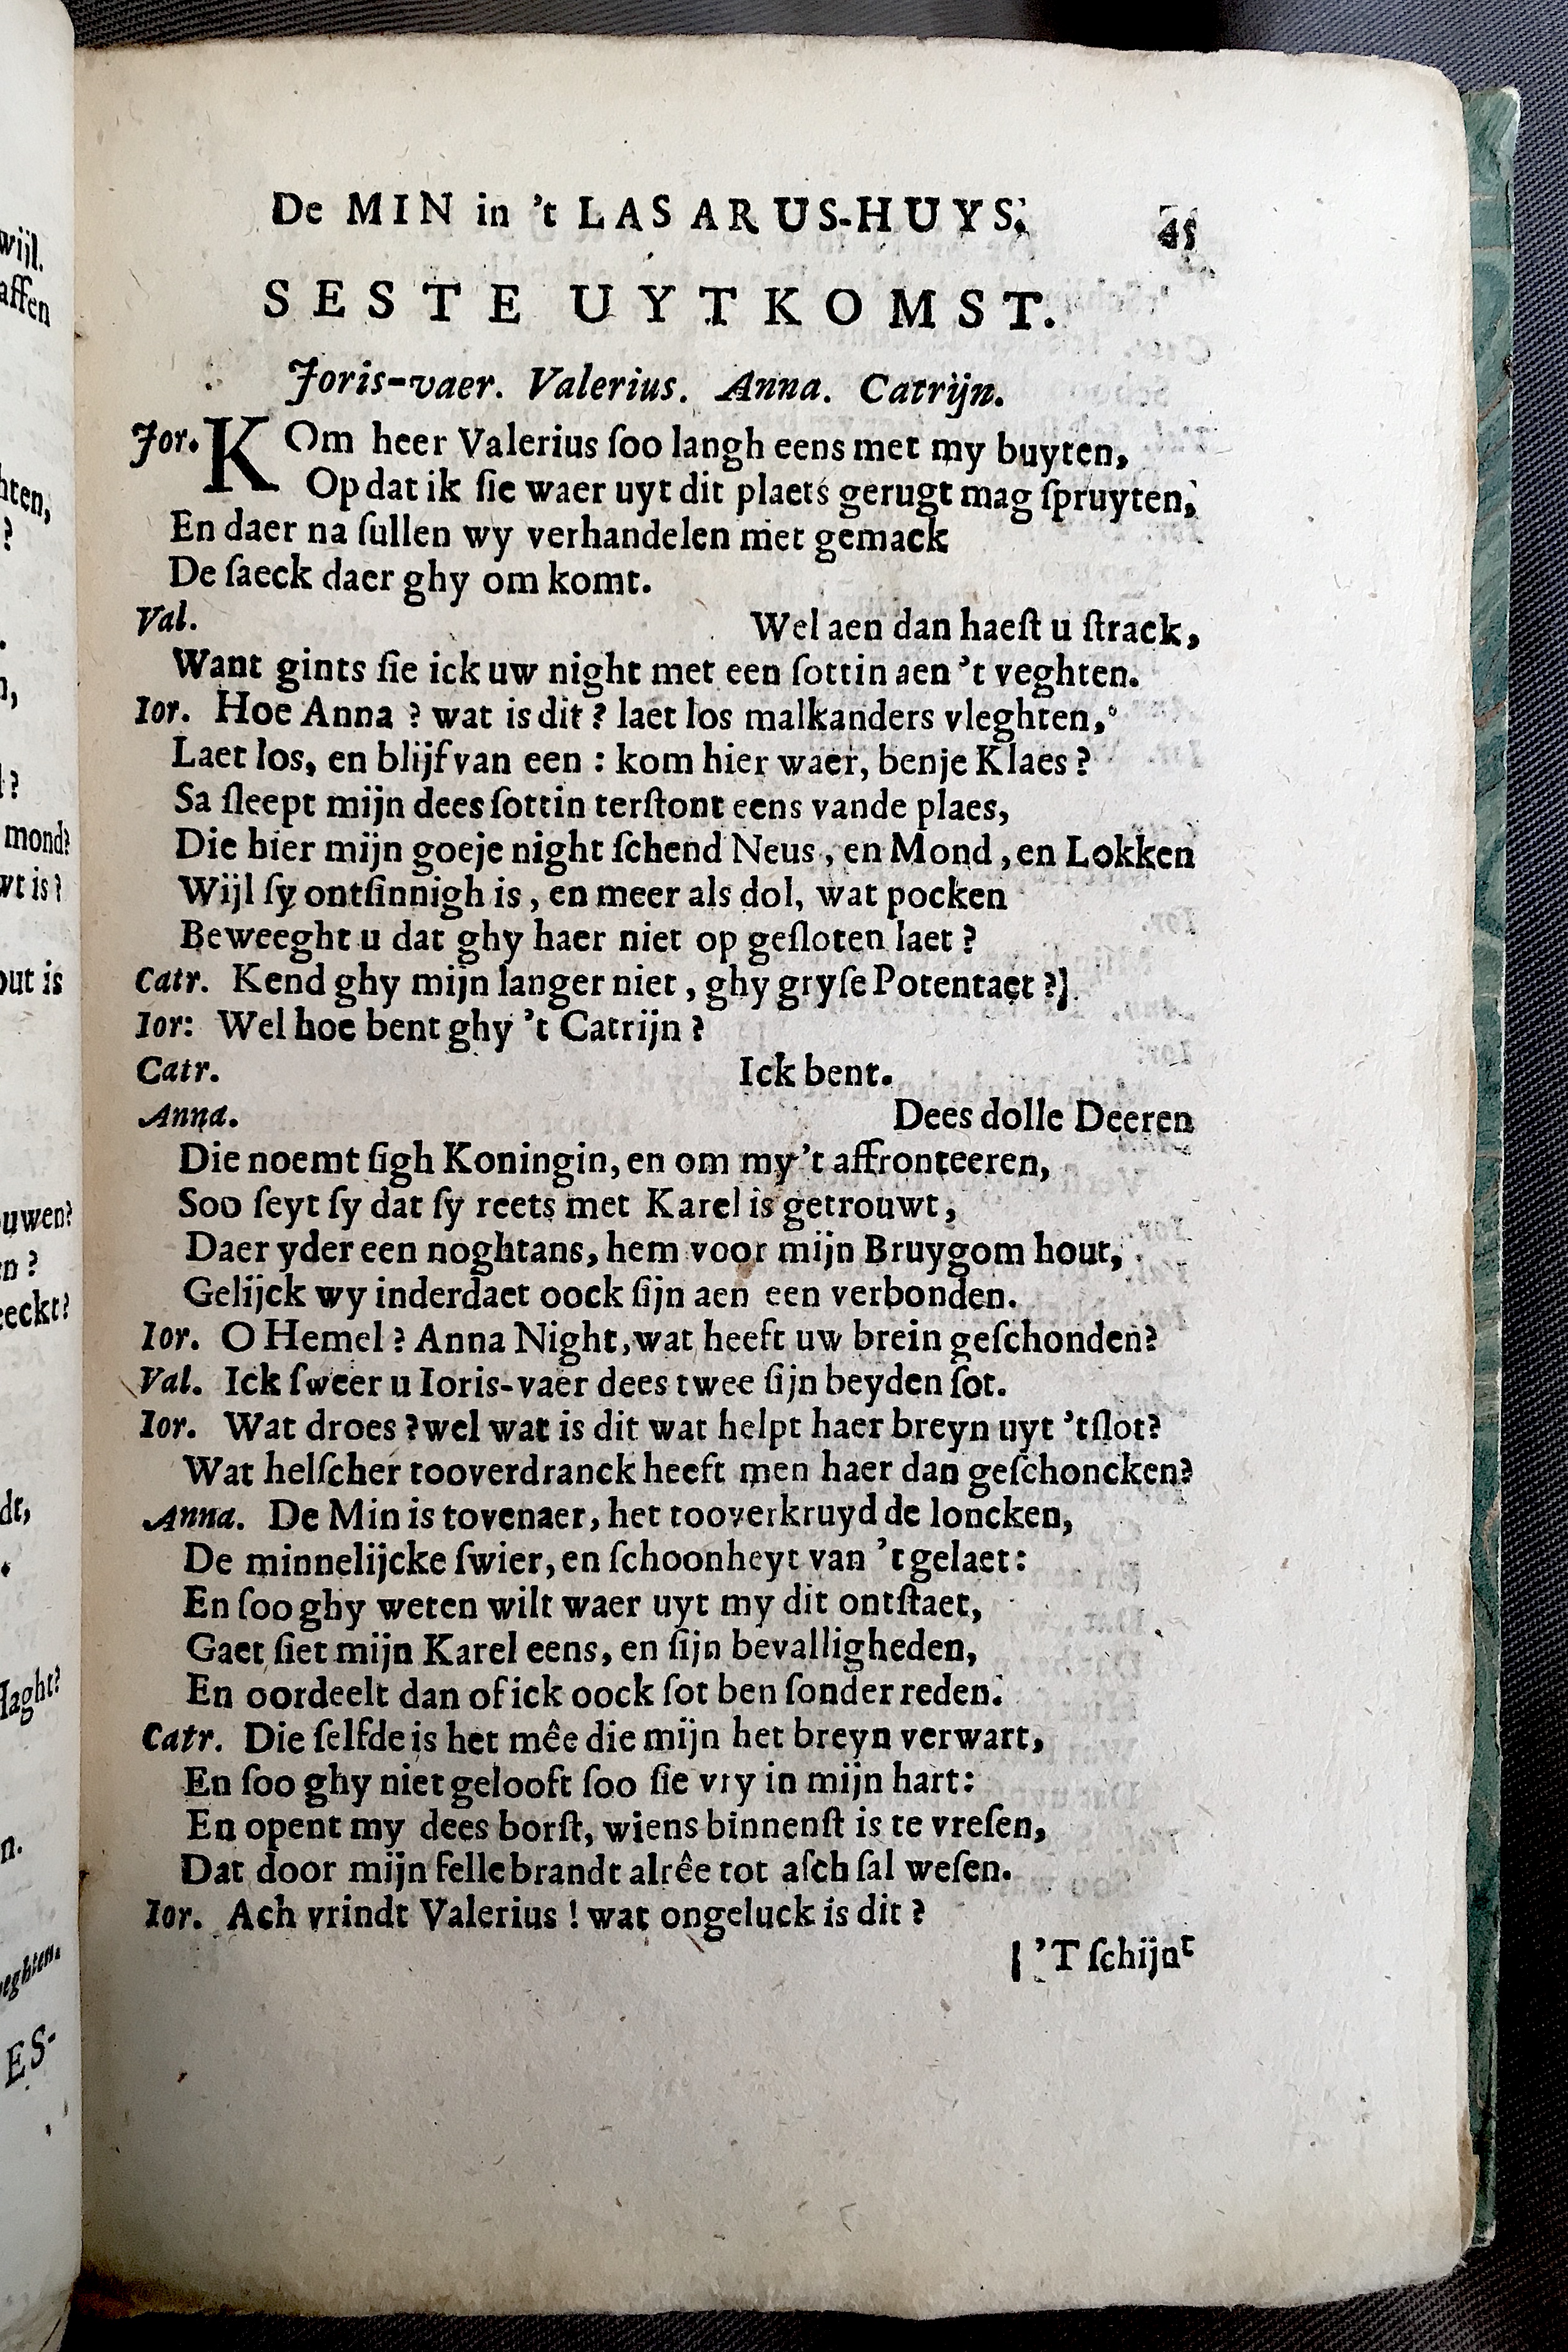 De MIN in 't LASARUS-HUYS. 45
SESTE UYTKOMST.
Joris-vaer. Valerius. Anna. Catrijn.
Jor. KOm heer Valerius ſoo langh eens met my buyten,
Op dat ik ſie waer uyt dit plaets gerugt mag ſpruyten,
En daer na ſullen wy verhandelen met gemack
De ſaeck daer ghy om komt.
Val. Wel aen dan haeſt u ſtrack,
Want gints ſie ick uw night met een ſottin aen 't veghten.
Ior. Hoe Anna ? wat is dit ? laet los malkanders vleghten,
Laet los, en blijf van een : kom hier waer, benje Klaes ?
Sa ſleept mijn dees ſottin terſtont eens vande plaes,
Die hier mijn goeje night ſchend Neus, en Mond, en Lokken
Wijl ſy ontſinnigh is, en meer als dol, wat pocken
Beweeght u dat ghy haer niet op geſloten laet ?
Catr. Kend ghy mijn langer niet, ghy gryſe Potentaet ?]
Ior: Wel hoe bent ghy 't Catrijn ?
Catr. Ick bent.
Anna. Dees dolle Deeren
Die noemt ſigh Koningin, en om my 't affronteeren,
Soo ſeyt ſy dat ſy reets met Karel is getrouwt,
Daer yder een noghtans, hem voor mijn Bruygom hout,
Gelijck wy inderdaet oock ſijn aen een verbonden.
Ior. O Hemel ? Anna Night, wat heeft uw brein geſchonden?
Val. Ick ſweer u Ioris-vaer dees twee ſijn beyden ſot.
Ior. Wat droes ? wel wat is dit wat helpt haer breyn uyt 'tſlot?
Wat helſcher tooverdranck heeft men haer dan geſchoncken?
Anna. De Min is tovenaer, het tooverkruyd de loncken,
De minnelijcke ſwier, en ſchoonheyt van 't gelaet:
En ſoo ghy weten wilt waer uyt my dit ontſtaet,
Gaet ſiet mijn Karel eens, en ſijn bevalligheden,
En oordeelt dan of ick oock ſot ben ſonder reden.
Catr. Die ſelfde is het mêe die mijn het breyn verwart,
En ſoo ghy niet gelooft ſoo ſie vry in mijn hart:
En opent my dees borſt, wiens binnenſt is te vreſen,
Dat door mijn felle brandt alrêe tot aſch ſal weſen.
Ior. Ach vrindt Valerius ! wat ongeluck is dit ?
'T ſchijnt